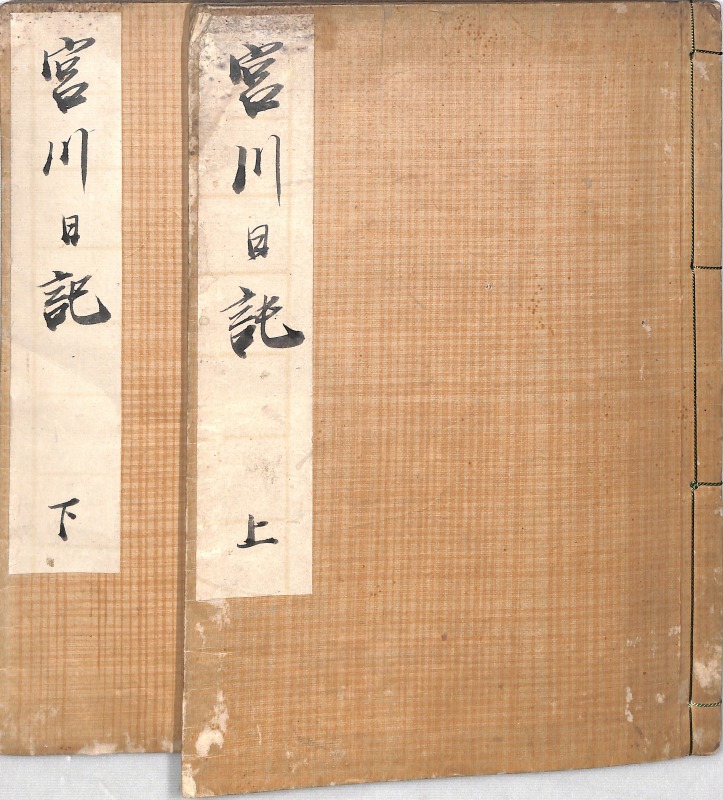 宮川日記 上
宮川日記 下